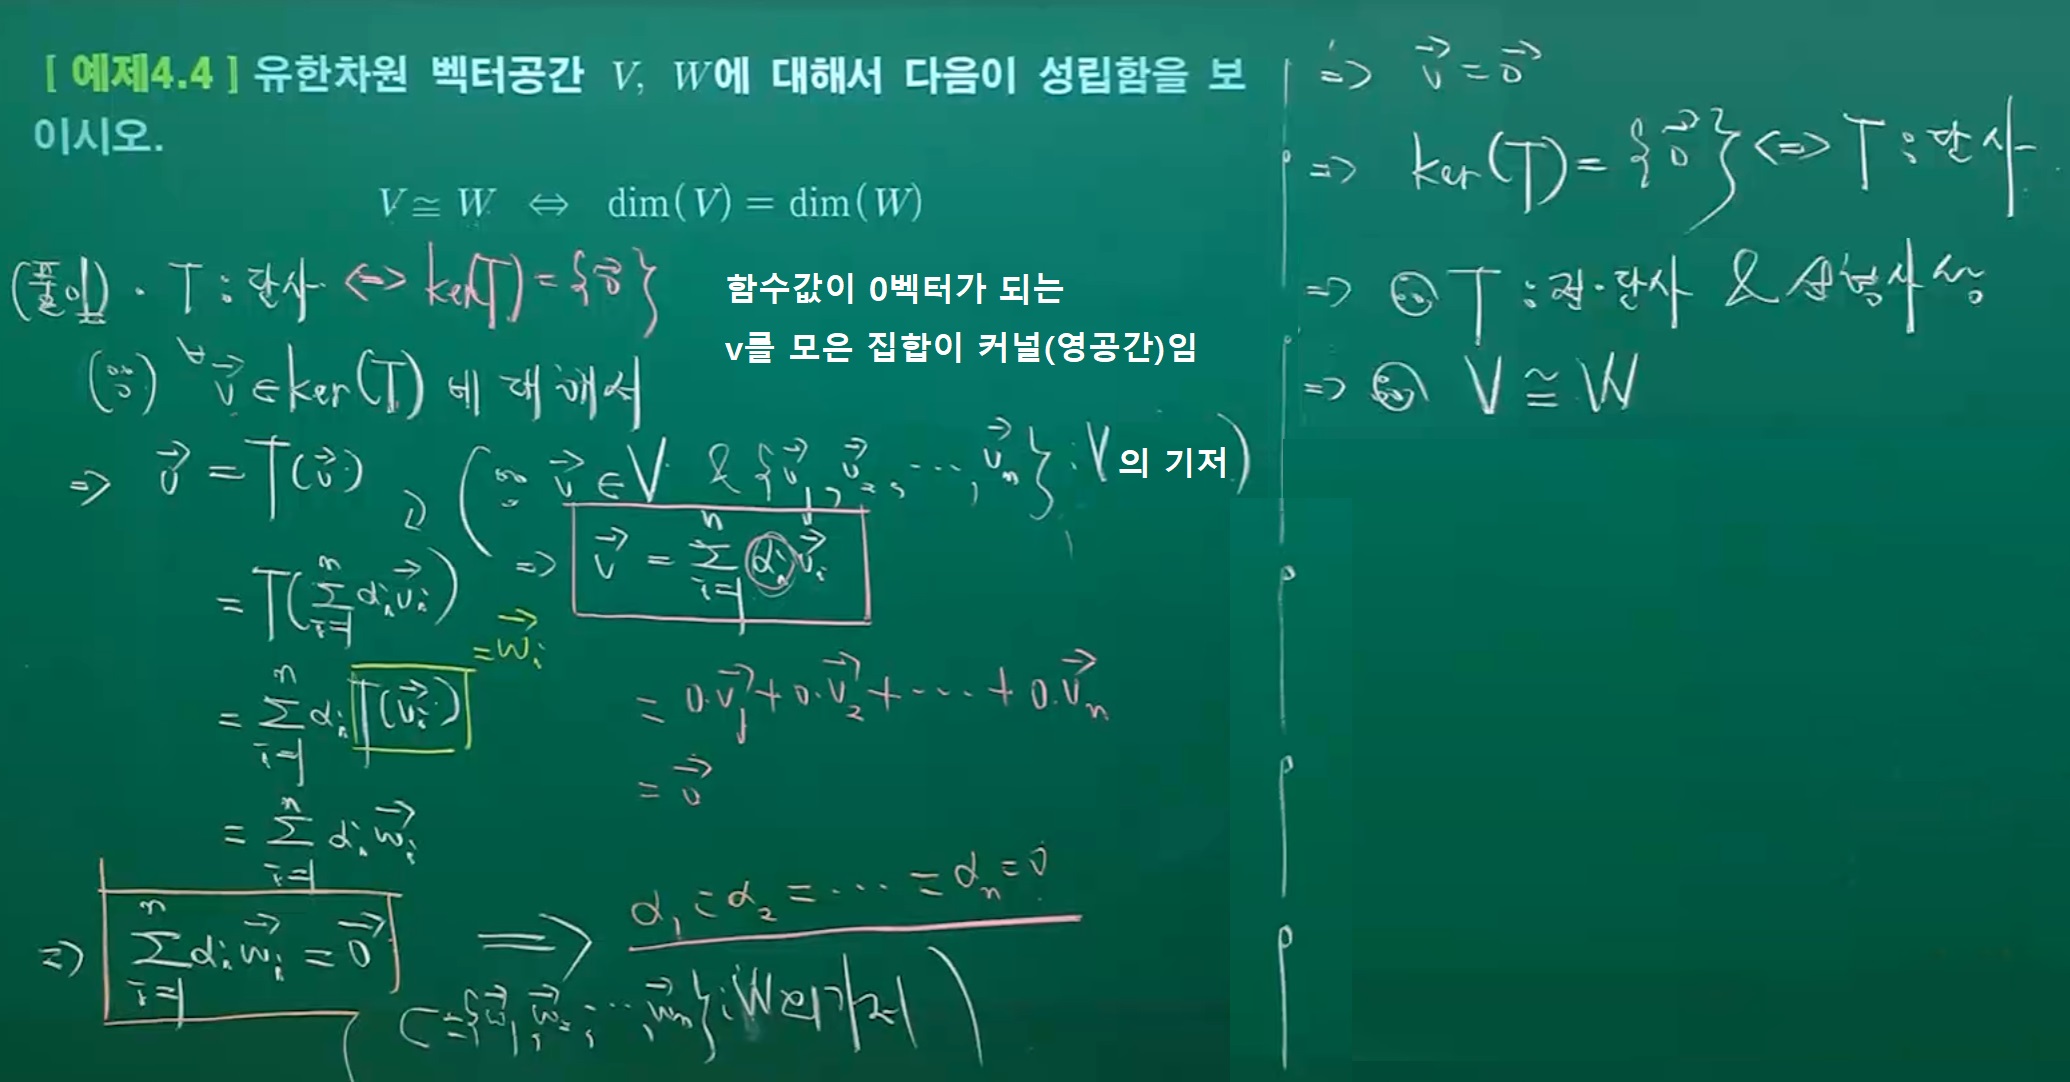 [ 예제4.4 ] 유한차원 벡터공간 V, W에 대해서 다음이 성립함을 보
이시오.
V ≅ W ⇔ dim(V) = dim(W)
(풀이) · T : 단사 <=> ker(T) = {0⃗}
함수값이 0벡터가 되는
v를 모은 집합이 커널(영공간)임
(∵) ∀v⃗ ∈ ker(T) 에 대해서
=> 0⃗ = T(v⃗) (∵ v⃗ ∈ V & {v⃗₁, v⃗₂, ···, v⃗ₙ} : V의 기저)
=> v⃗ = Σⁿᵢ₌₁ αᵢv⃗ᵢ
= T(Σⁿᵢ₌₁ αᵢv⃗ᵢ)
= w⃗ᵢ
= Σⁿᵢ₌₁ αᵢ T(v⃗ᵢ)
= 0·v⃗₁ + 0·v⃗₂ + ··· + 0·v⃗ₙ
= 0⃗
= Σⁿᵢ₌₁ αᵢw⃗ᵢ
=> Σⁿᵢ₌₁ αᵢw⃗ᵢ = 0⃗ ⟹ α₁ = α₂ = ··· = αₙ = 0
(C = {w⃗₁, w⃗₂, ···, w⃗ₙ} : W의 기저)
=> v⃗ = 0⃗
=> ker(T) = {0⃗} <=> T : 단사
=> ∴ T : 전·단사 & 선형사상
=> ∴ V ≅ W